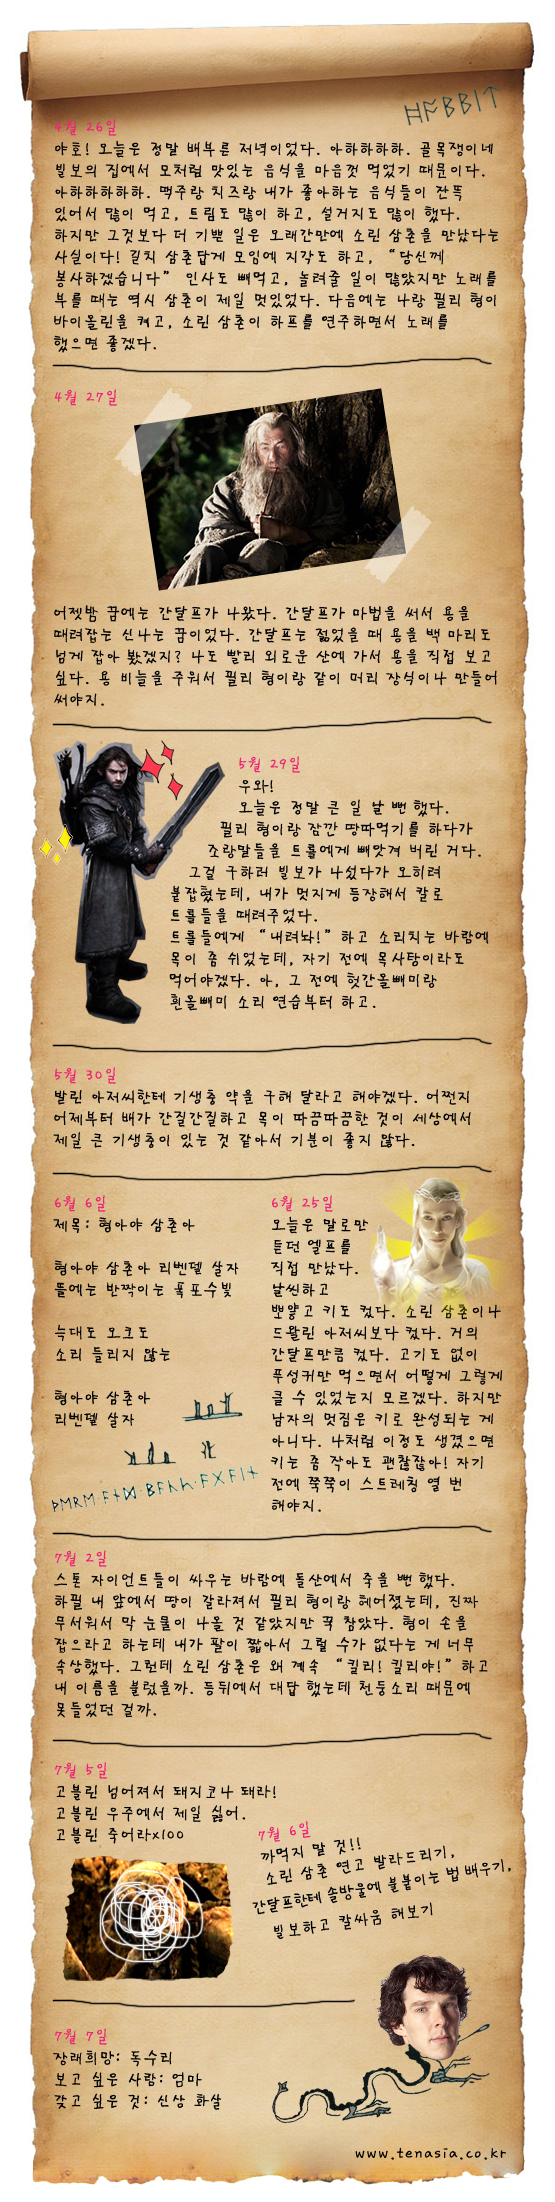 ᚺᚩᛒᛒᛁᛏ
4월 26일
야호! 오늘은 정말 배부른 저녁이었다. 아하하하하. 골목쟁이네
빌보의 집에서 모처럼 맛있는 음식을 마음껏 먹었기 때문이다.
아하하하하하. 맥주랑 치즈랑 내가 좋아하는 음식들이 잔뜩
있어서 많이 먹고, 트림도 많이 하고, 설거지도 많이 했다.
하지만 그것보다 더 기쁜 일은 오래간만에 소린 삼촌을 만났다는
사실이다! 길치 삼촌답게 모임에 지각도 하고, “당신께
봉사하겠습니다” 인사도 빼먹고, 놀려줄 일이 많았지만 노래를
부를 때는 역시 삼촌이 제일 멋있었다. 다음에는 나랑 필리 형이
바이올린을 켜고, 소린 삼촌이 하프를 연주하면서 노래를
했으면 좋겠다.
4월 27일
어젯밤 꿈에는 간달프가 나왔다. 간달프가 마법을 써서 용을
때려잡는 신나는 꿈이었다. 간달프는 젊었을 때 용을 백 마리도
넘게 잡아 봤겠지? 나도 빨리 외로운 산에 가서 용을 직접 보고
싶다. 용 비늘을 주워서 필리 형이랑 같이 머리 장식이나 만들어
써야지.
5월 29일
우와!
오늘은 정말 큰 일 날 뻔 했다.
필리 형이랑 잠깐 땅따먹기를 하다가
조랑말들을 트롤에게 빼앗겨 버린 거다.
그걸 구하러 빌보가 나섰다가 오히려
붙잡혔는데, 내가 멋지게 등장해서 칼로
트롤들을 때려주었다.
트롤들에게 “내려놔!” 하고 소리치는 바람에
목이 좀 쉬었는데, 자기 전에 목사탕이라도
먹어야겠다. 아, 그 전에 헛간올빼미랑
흰올빼미 소리 연습부터 하고.
5월 30일
발린 아저씨한테 기생충 약을 구해 달라고 해야겠다. 어쩐지
어제부터 배가 간질간질하고 목이 따끔따끔한 것이 세상에서
제일 큰 기생충이 있는 것 같아서 기분이 좋지 않다.
6월 6일
제목: 형아야 삼촌아
형아야 삼촌아 리벤델 살자
뜰에는 반짝이는 폭포수빛
늑대도 오크도
소리 들리지 않는
형아야 삼촌아
리벤델 살자
6월 25일
오늘은 말로만
듣던 엘프를
직접 만났다.
날씬하고
뽀얗고 키도 컸다. 소린 삼촌이나
드왈린 아저씨보다 컸다. 거의
간달프만큼 컸다. 고기도 없이
푸성귀만 먹으면서 어떻게 그렇게
클 수 있었는지 모르겠다. 하지만
남자의 멋짐은 키로 완성되는 게
아니다. 나처럼 이정도 생겼으면
키는 좀 작아도 괜찮잖아! 자기
전에 쭉쭉이 스트레칭 열 번
해야지.
7월 2일
스톤 자이언트들이 싸우는 바람에 돌산에서 죽을 뻔 했다.
하필 내 앞에서 땅이 갈라져서 필리 형이랑 헤어졌는데, 진짜
무서워서 막 눈물이 나올 것 같았지만 꾹 참았다. 형이 손을
잡으라고 하는데 내가 팔이 짧아서 그럴 수가 없다는 게 너무
속상했다. 그런데 소린 삼촌은 왜 계속 “킬리! 킬리야!” 하고
내 이름을 불렀을까. 등뒤에서 대답 했는데 천둥소리 때문에
못들었던 걸까.
7월 5일
고블린 넘어져서 돼지코나 돼라!
고블린 우주에서 제일 싫어.
고블린 죽어라x100
7월 6일
까먹지 말 것!!
소린 삼촌 연고 발라드리기,
간달프한테 솔방울에 불붙이는 법 배우기,
빌보하고 칼싸움 해보기
7월 7일
장래희망: 독수리
보고 싶은 사람: 엄마
갖고 싶은 것: 신상 화살
www.tenasia.co.kr